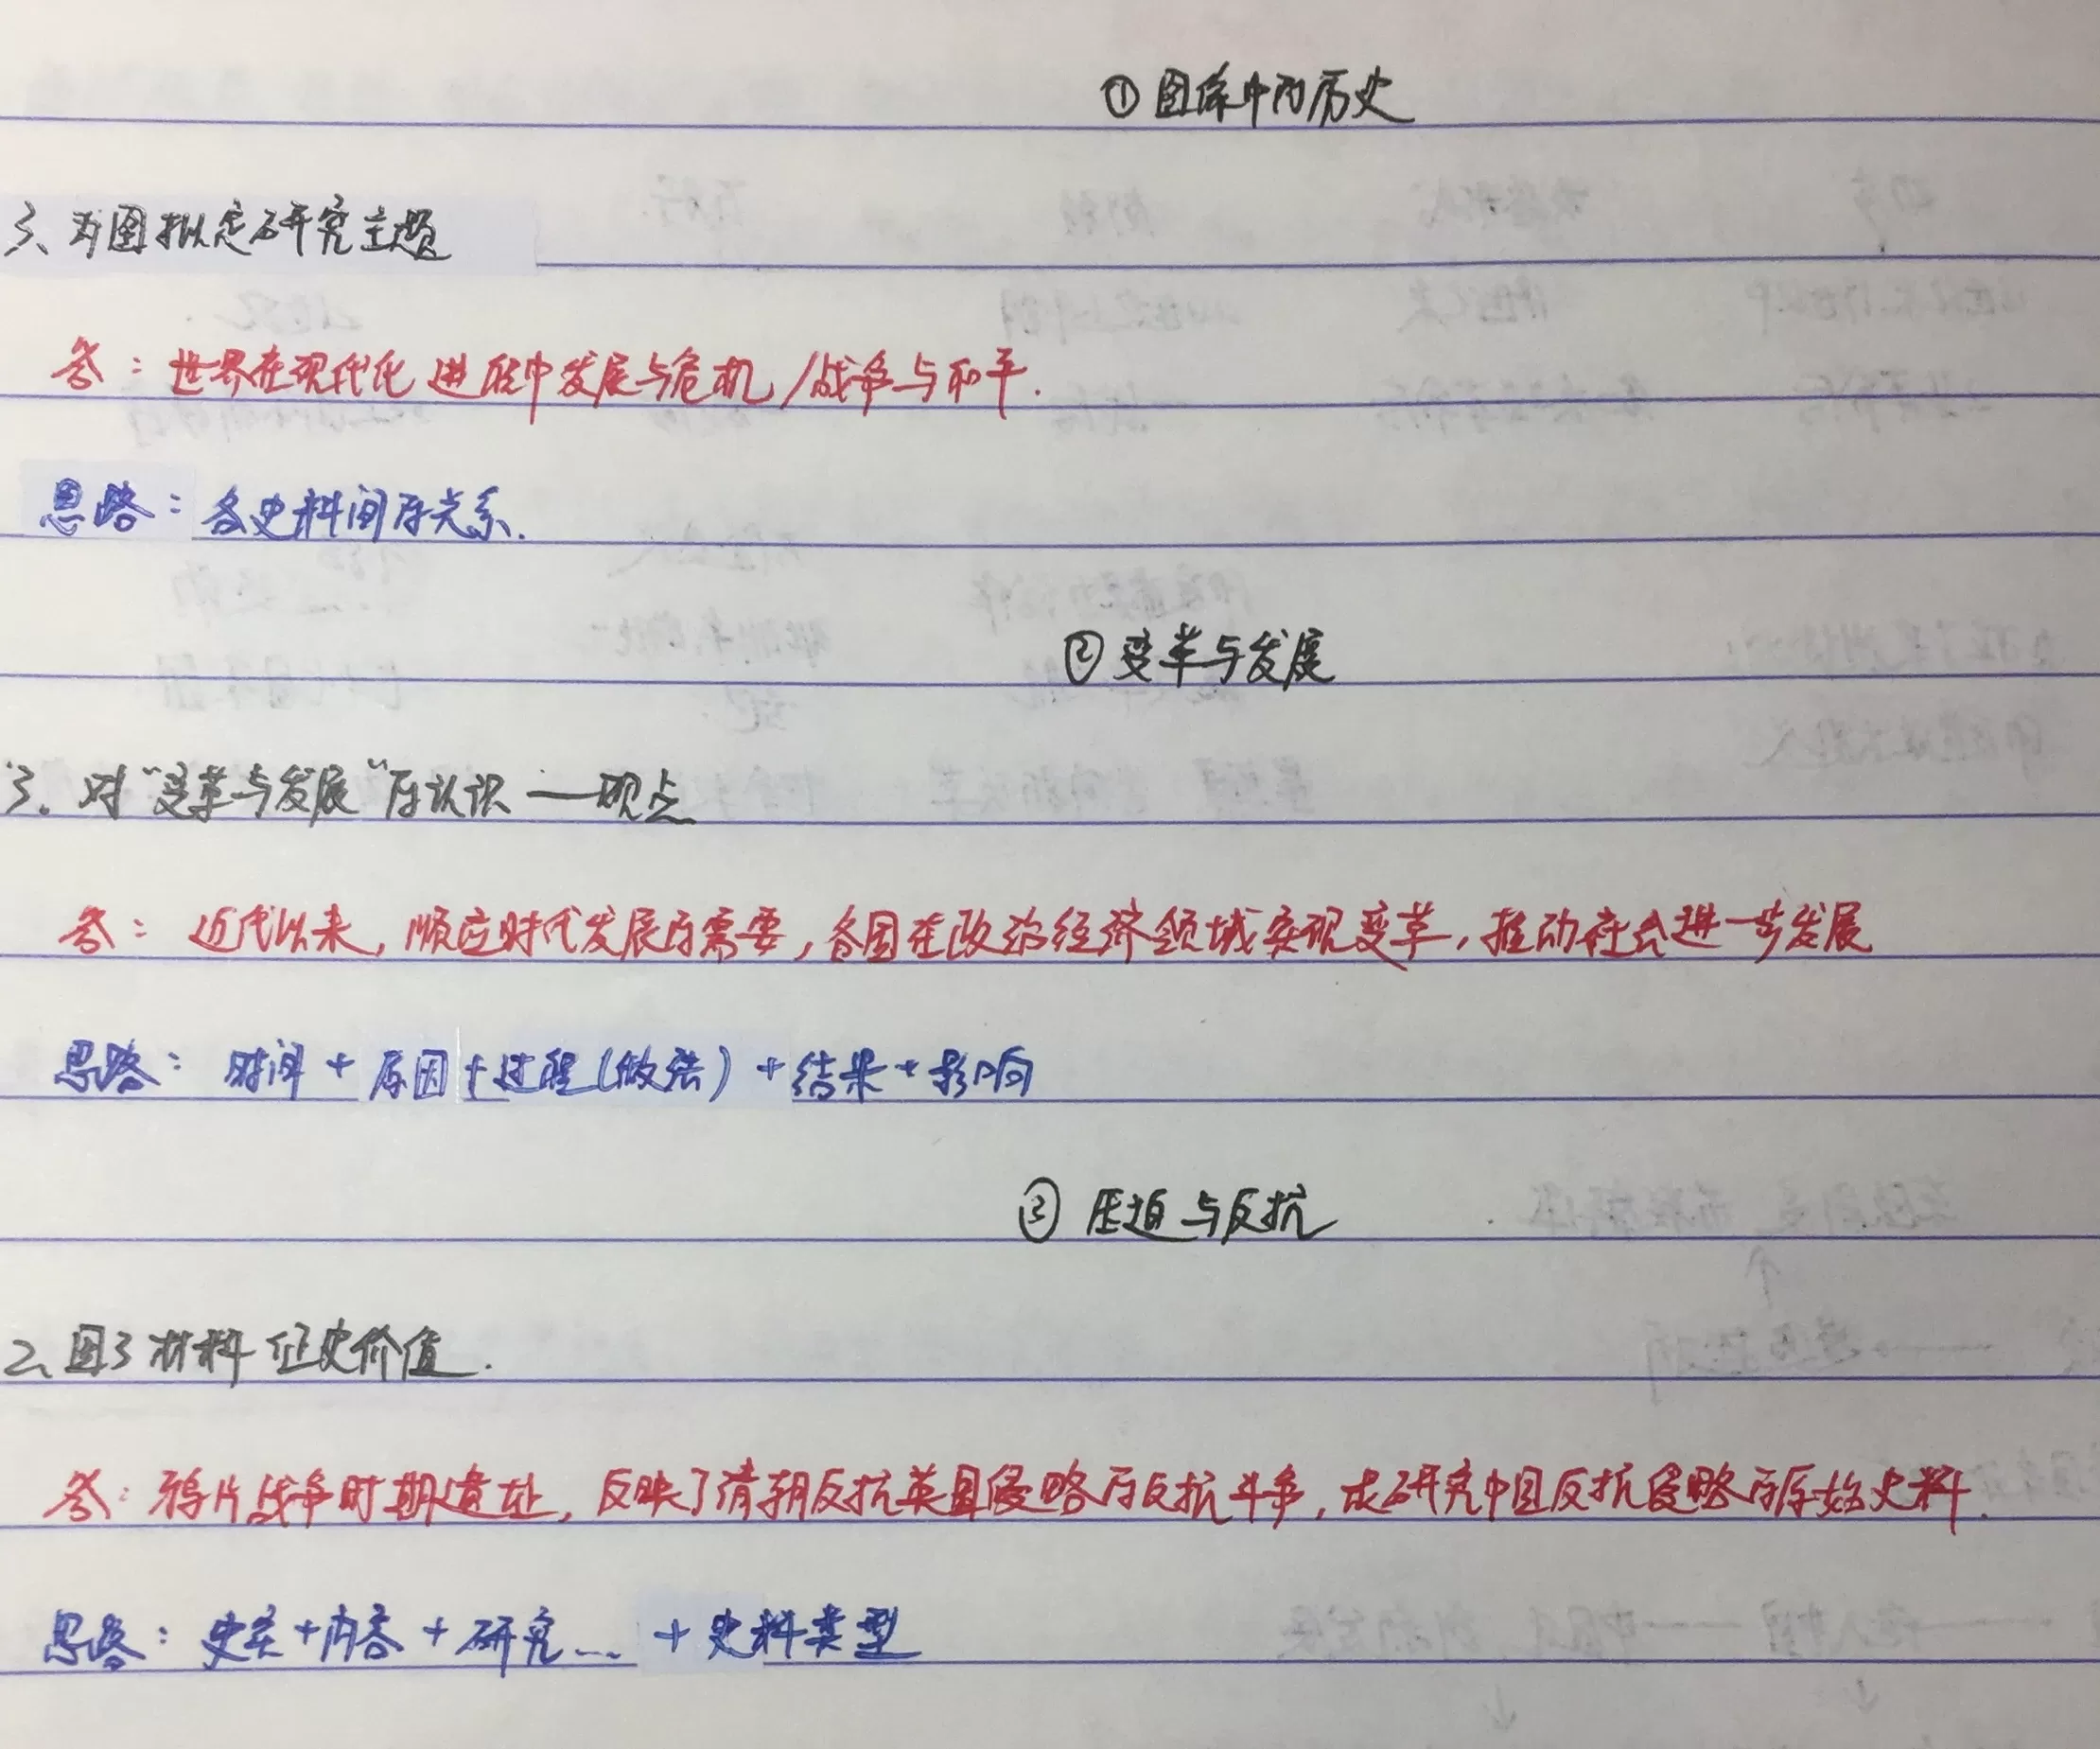 ①图像中的历史
3、为图拟定研究主题
答：世界在现代化进程中发展与危机/战争与和平.
思路：各史料间的关系.
②变革与发展
3. 对“变革与发展”的认识——观点
答：近代以来，顺应时代发展的需要，各国在政治经济领域实现变革，推动社会进一步发展
思路：时间+原因+过程(做法)+结果+影响
③压迫与反抗
2、图3材料证史价值.
答：鸦片战争时期遗址，反映了清朝反抗英国侵略的反抗斗争，成研究中国反抗侵略的原始史料.
思路：史实+内容+研究...+史料类型